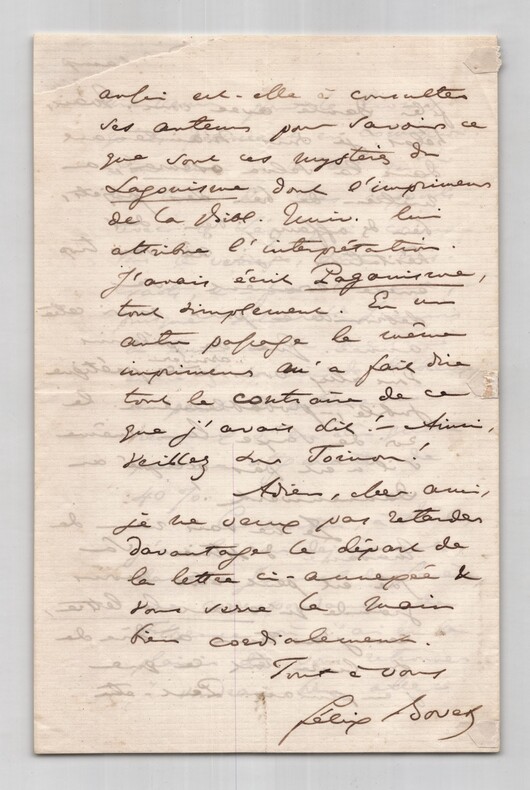 est-elle à consulter
ses auteurs pour savoir ce
que sont ces mystères du
Lagonisme dont l'imprimeur
de la Bibl. Univ. lui
attribue l'interprétation.
j'avais écrit Paganisme,
tout simplement. En un
autre passage le même
imprimeur m'a fait dire
tout le contraire de ce
que j'avais dit! – Ainsi,
veillez sur
Adieu, cher ami,
je ne veux pas retarder
davantage le départ de
la lettre ci-annexée &
vous serre la main
bien cordialement.
Tout à vous
Félix Bovet